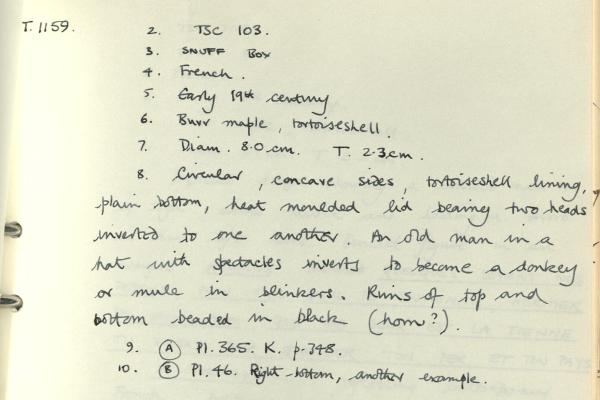 T.1159.
2. TSC 103.
3. SNUFF BOX
4. French.
5. Early 19th century
6. Burr maple, tortoiseshell.
7. Diam. 8.0cm. T. 2.3cm.
8. Circular, concave sides, tortoiseshell lining,
plain bottom, heat moulded lid bearing two heads
inverted to one another. An old man in a
hat with spectacles inverts to become a donkey
or mule in blinkers. Rims of top and
bottom beaded in black (horn?).
9. (A) Pl. 365. K. p.348.
10. (B) Pl. 46. Right bottom, another example.